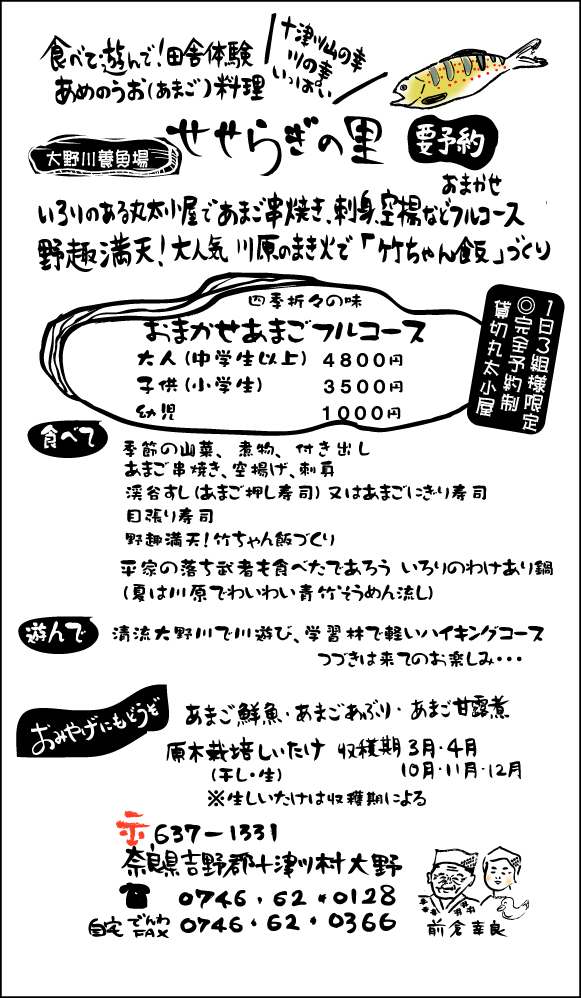 食べて遊んで!田舎体験
あめのうお(あまご)料理
十津川山の幸
川の幸
いっぱい
大野川養魚場
せせらぎの里
要予約
おまかせ
いろりのある丸太小屋であまご串焼き、刺身、空揚などフルコース
野趣満天!大人気 川原のまき火で「竹ちゃん飯」づくり
四季折々の味
おまかせあまごフルコース
大人(中学生以上) 4800円
子供(小学生) 3500円
幼児 1000円
1日3組様限定
◎完全予約制
貸切丸太小屋
食べて
季節の山菜、煮物、付き出し
あまご串焼き、空揚げ、刺身
渓谷すし(あまご押し寿司)又はあまごにぎり寿司
目張り寿司
野趣満天!竹ちゃん飯づくり
平家の落ち武者も食べたであろう いろりのわけあり鍋
(夏は川原でわいわい青竹そうめん流し)
遊んで
清流大野川で川遊び、学習林で軽いハイキングコース
つづきは来てのお楽しみ・・・
おみやげにもどうぞ
あまご鮮魚・あまごあぶり・あまご甘露煮
原木栽培しいたけ 収穫期 3月・4月
(干し・生) 10月・11月・12月
※生しいたけは収穫期による
〒637-1331
奈良県吉野郡十津川村大野
☎ 0746・62・0128
自宅 でんわ FAX 0746・62・0366
前倉幸良